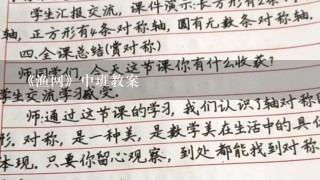 学生汇报交流，课件演示：长方形有2条
轴，正方形有4条对称轴，圆有无数条对称轴.
四.全课总结(赏对称)
今天这节课你有什么收获？
《渔网》中班教案
学生交流学习
师：通过这节课的学习，我们认识了轴对称
形.对称，是一种美，是数学美在生活中的具
体现.只要你留心观察，到处都能找到对称